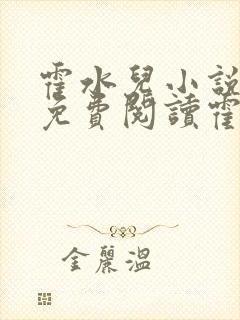 霍水兒小說
免費閱讀霍
金麗溫